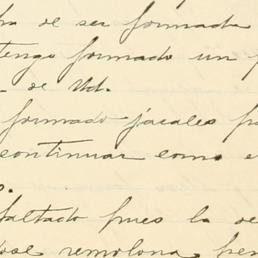 de ser formada
tengo formado un
de Ud.
formado jacales
continuar como
faltado pues la
remolona,